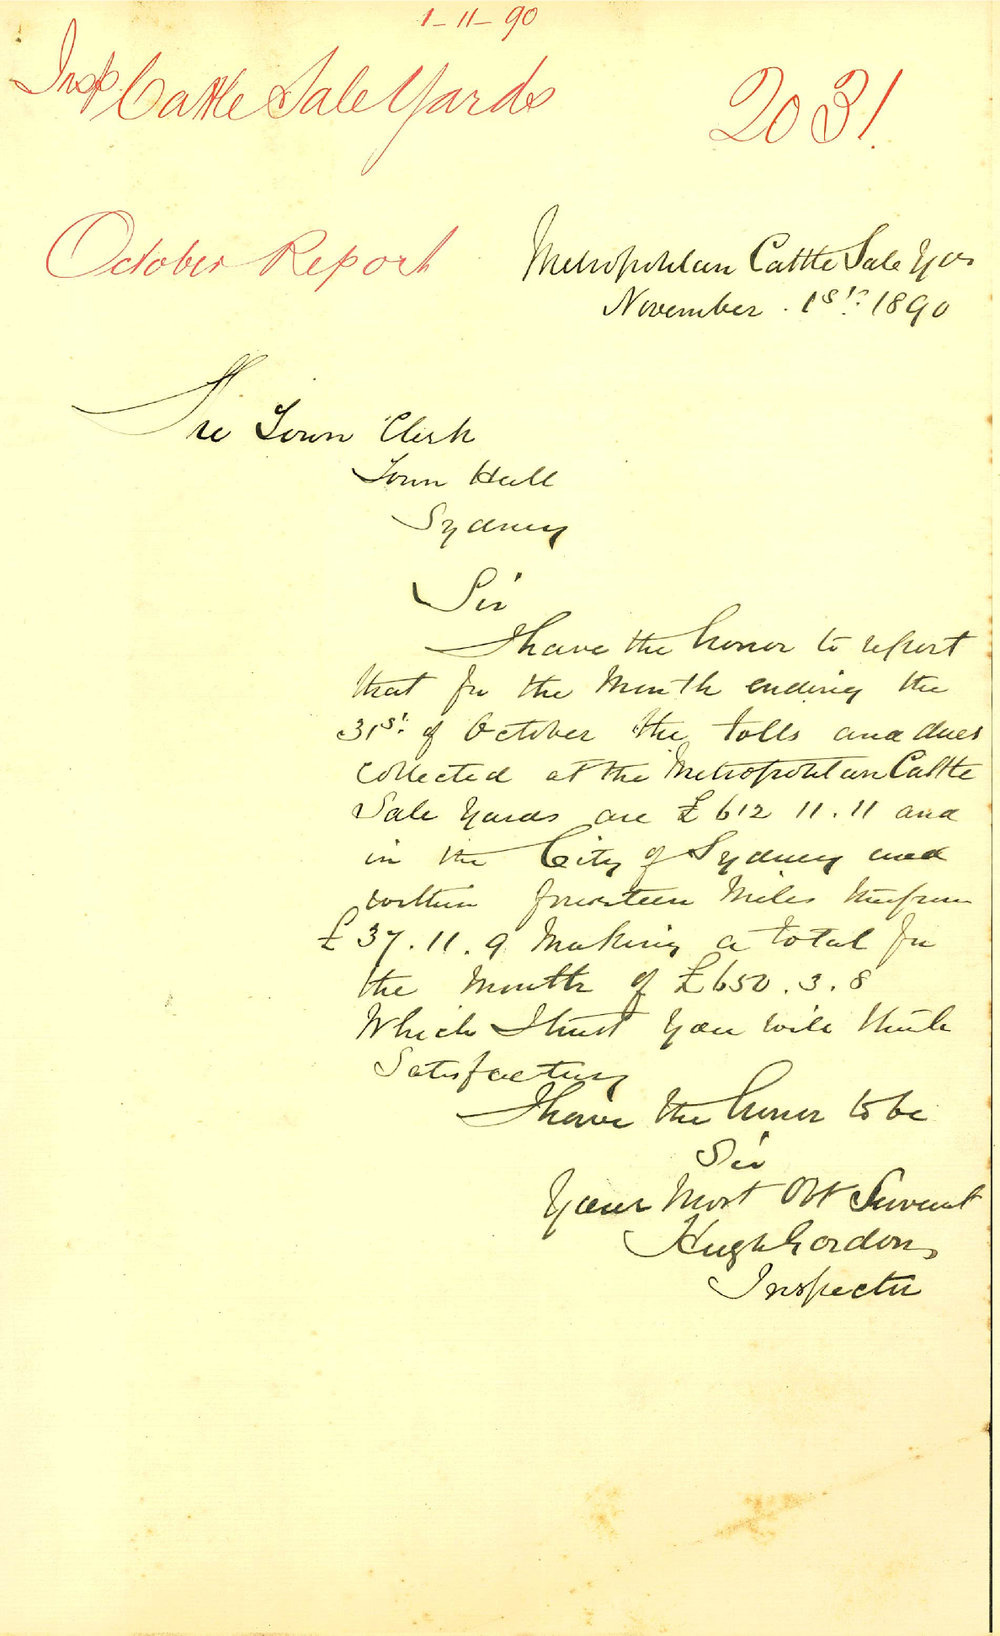 1-11-90
Insp Cattle Sale Yards
2031.
October Report
Metropolitan Cattle Sale Yds
November . 1st. 1890
The Town Clerk
Town Hall
Sydney
Sir
I have the honor to report
that for the Month ending the
31st. of October the tolls and dues
Collected at the Metropolitan Cattle
Sale Yards are £612 11.11 and
in the City of Sydney and
within fourteen Miles therefrom
£37.11.9 Making a total for
the Month of £650.3.8
Which I trust you will think
Satisfactory
I have the honor to be
Sir
Your Most Obt Servant
Hugh Gordon
Inspector